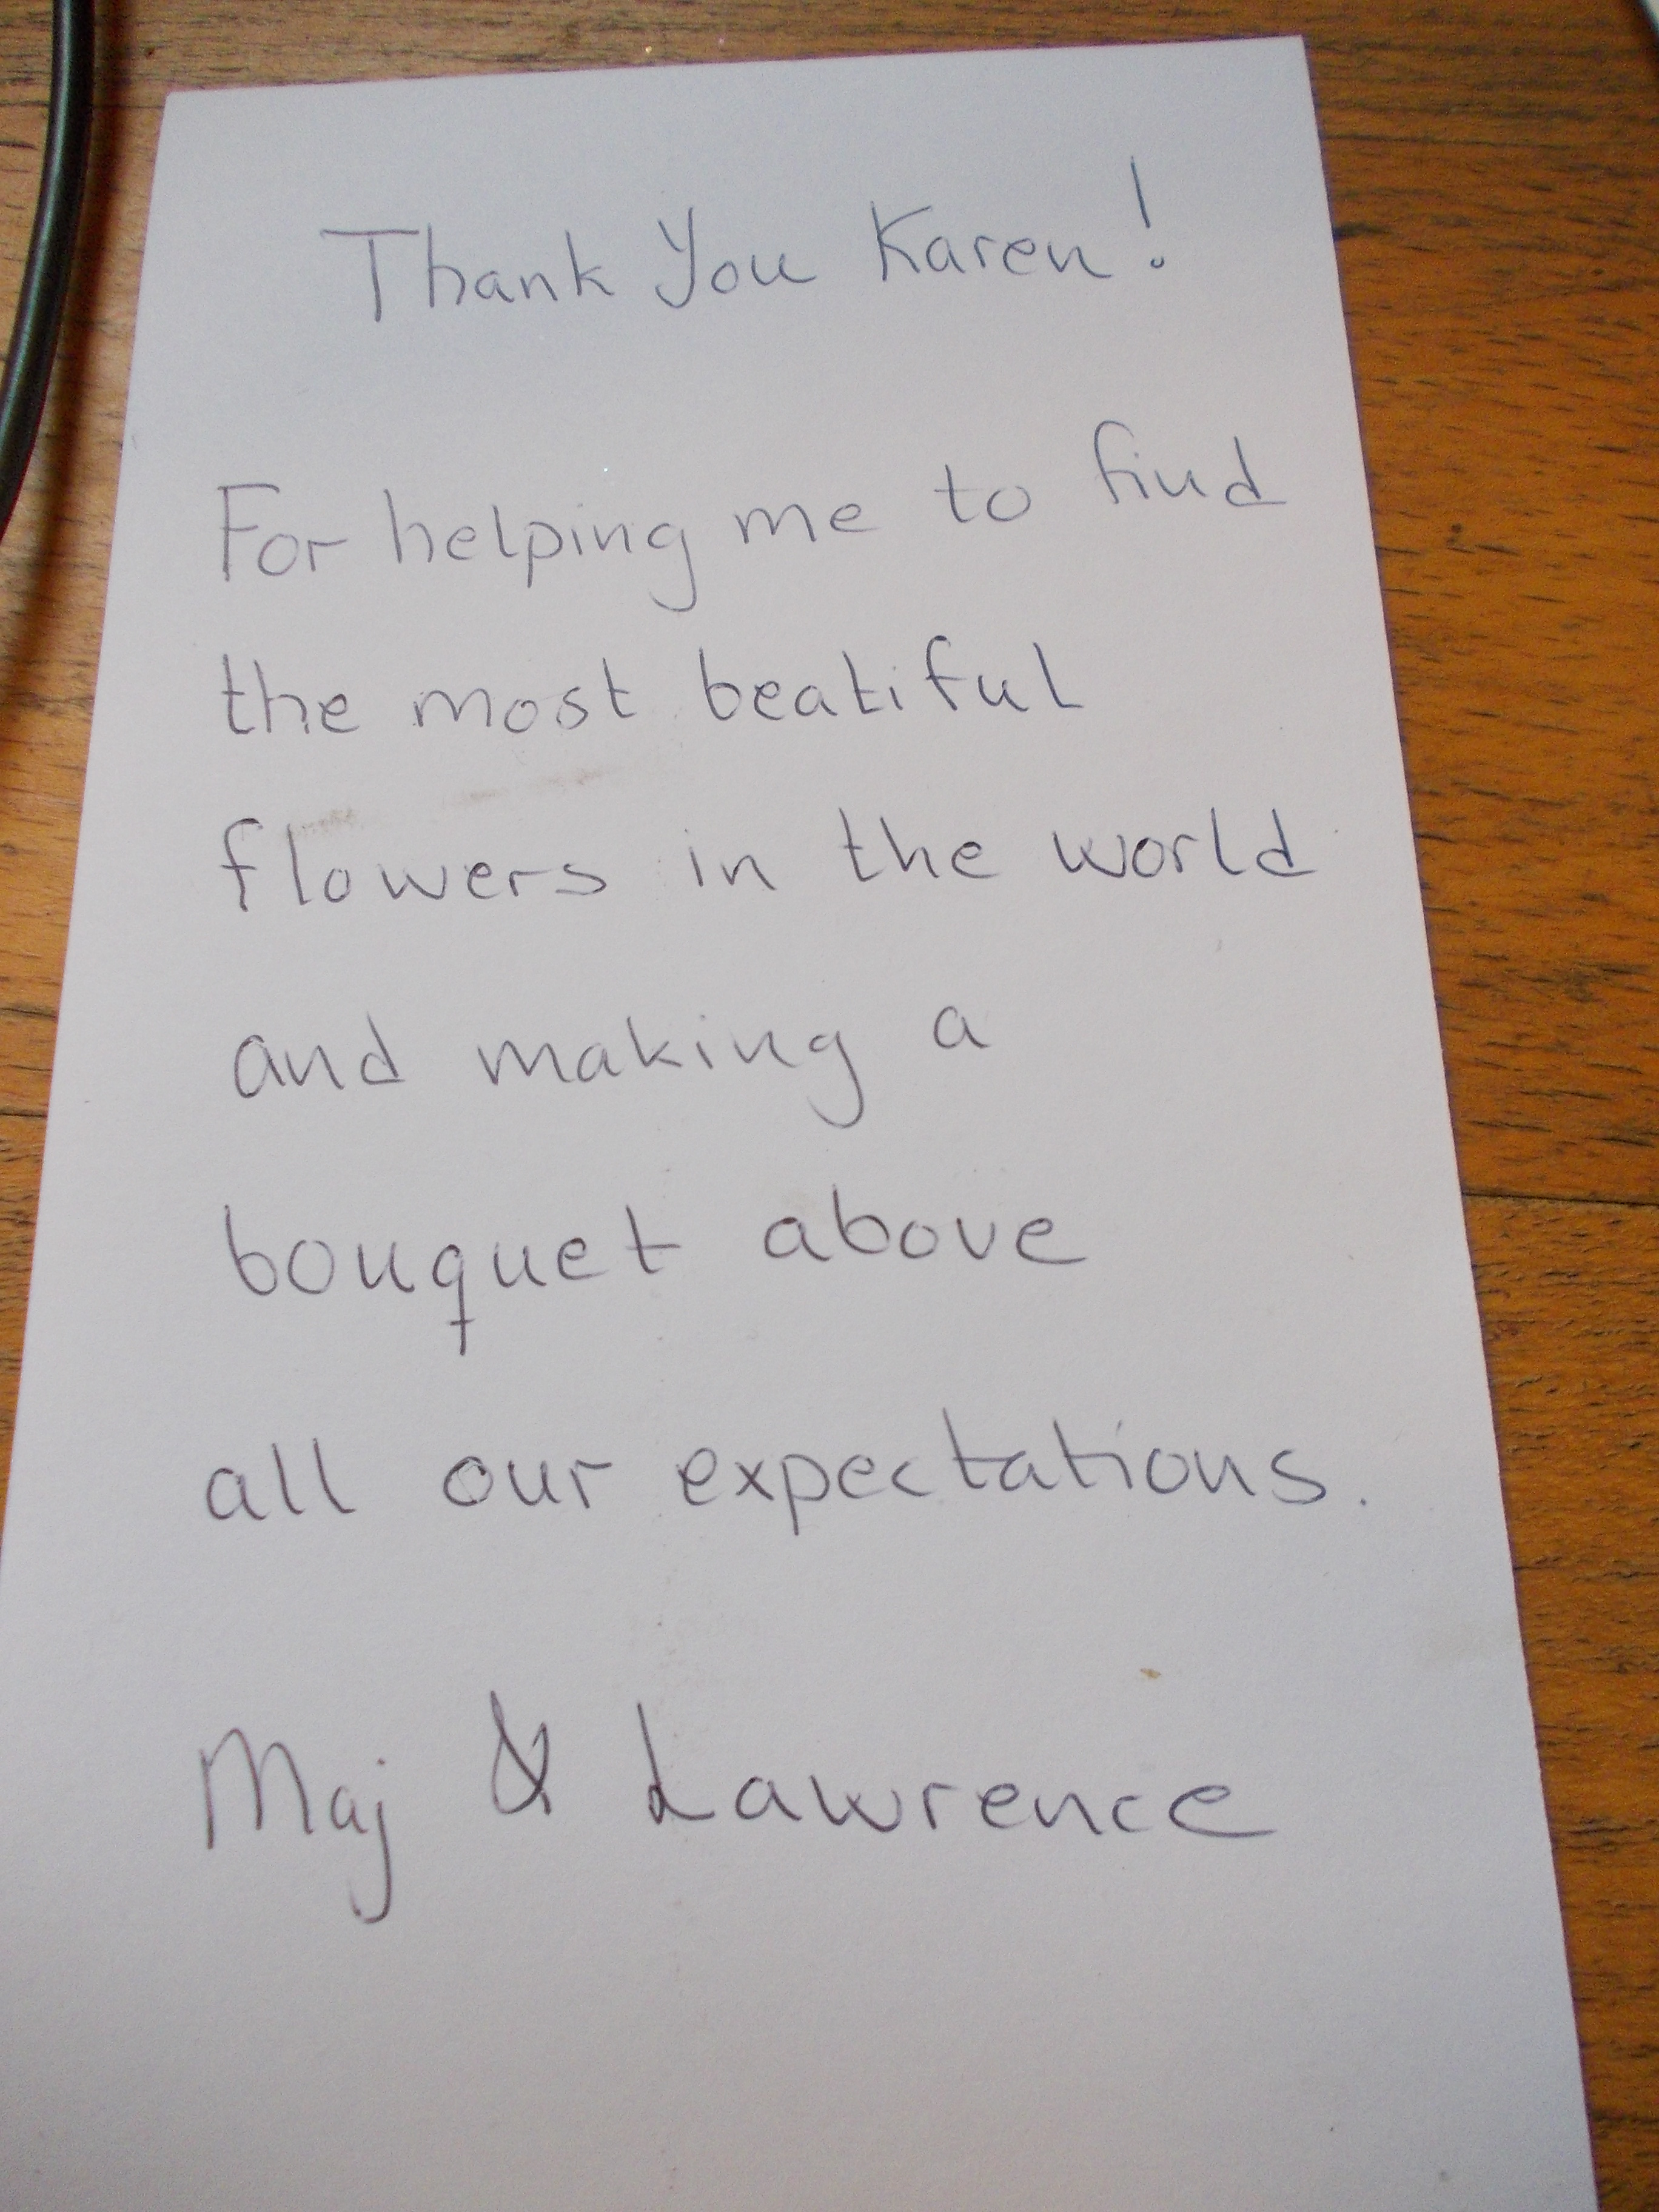 Thank You Karen!
For helping me to find
the most beatiful
flowers in the world
and making a
bouquet above
all our expectations.
Maj & Lawrence